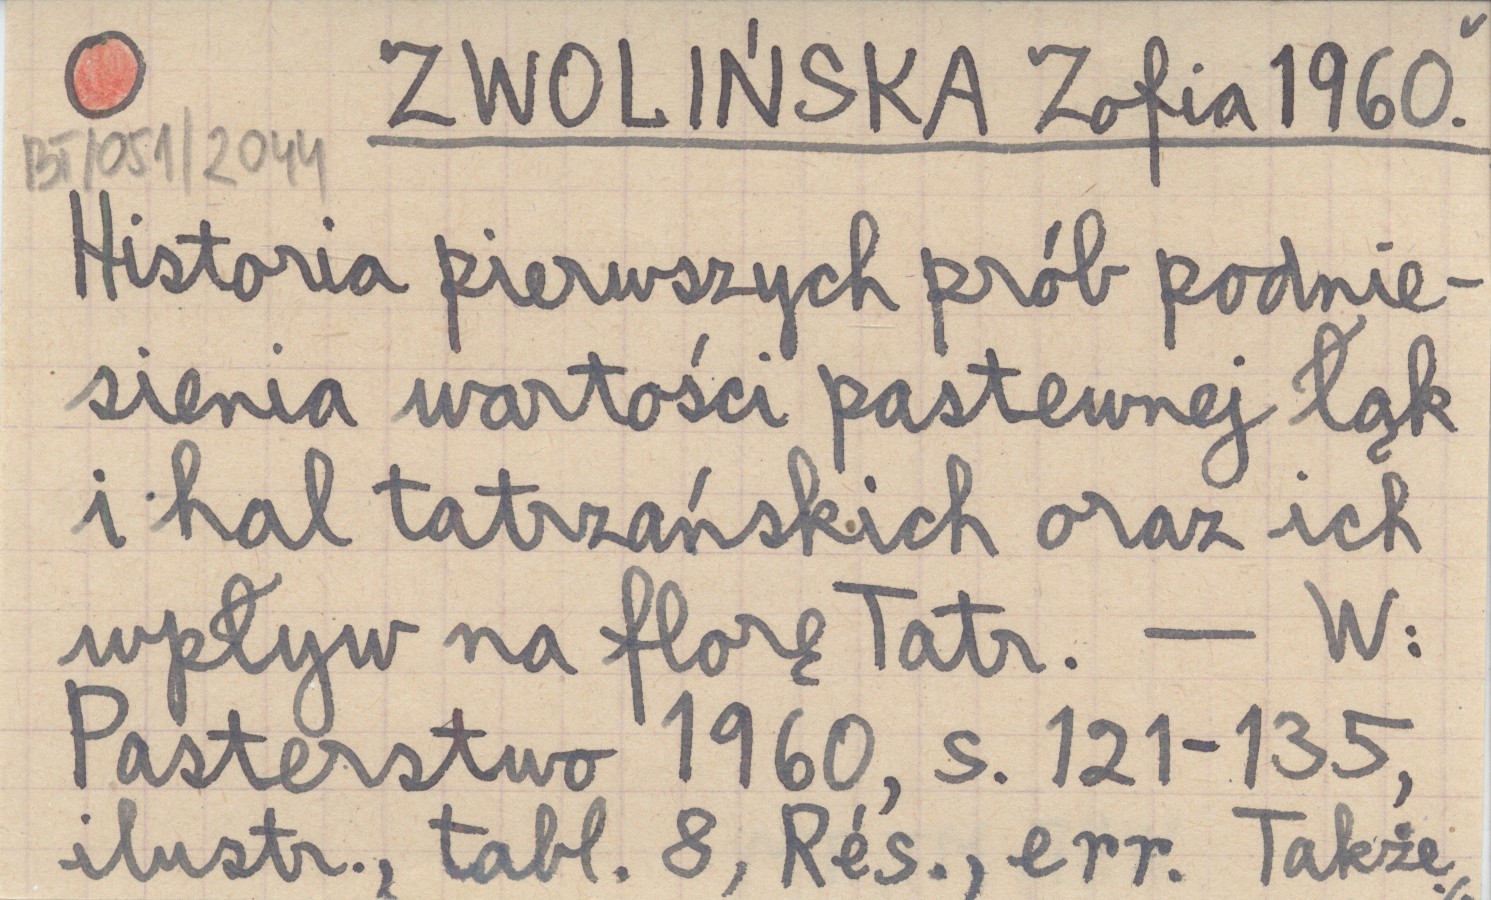 ZWOLIŃSKA Zofia 1960.
BT/051/2044
Historia pierwszych prób podnie-
sienia wartości pastewnej łąk
i hal tatrzańskich oraz ich
wpływ na florę Tatr. — W:
Pasterstwo 1960, s. 121-135,
ilustr., tabl. 8, Rés., err. Także